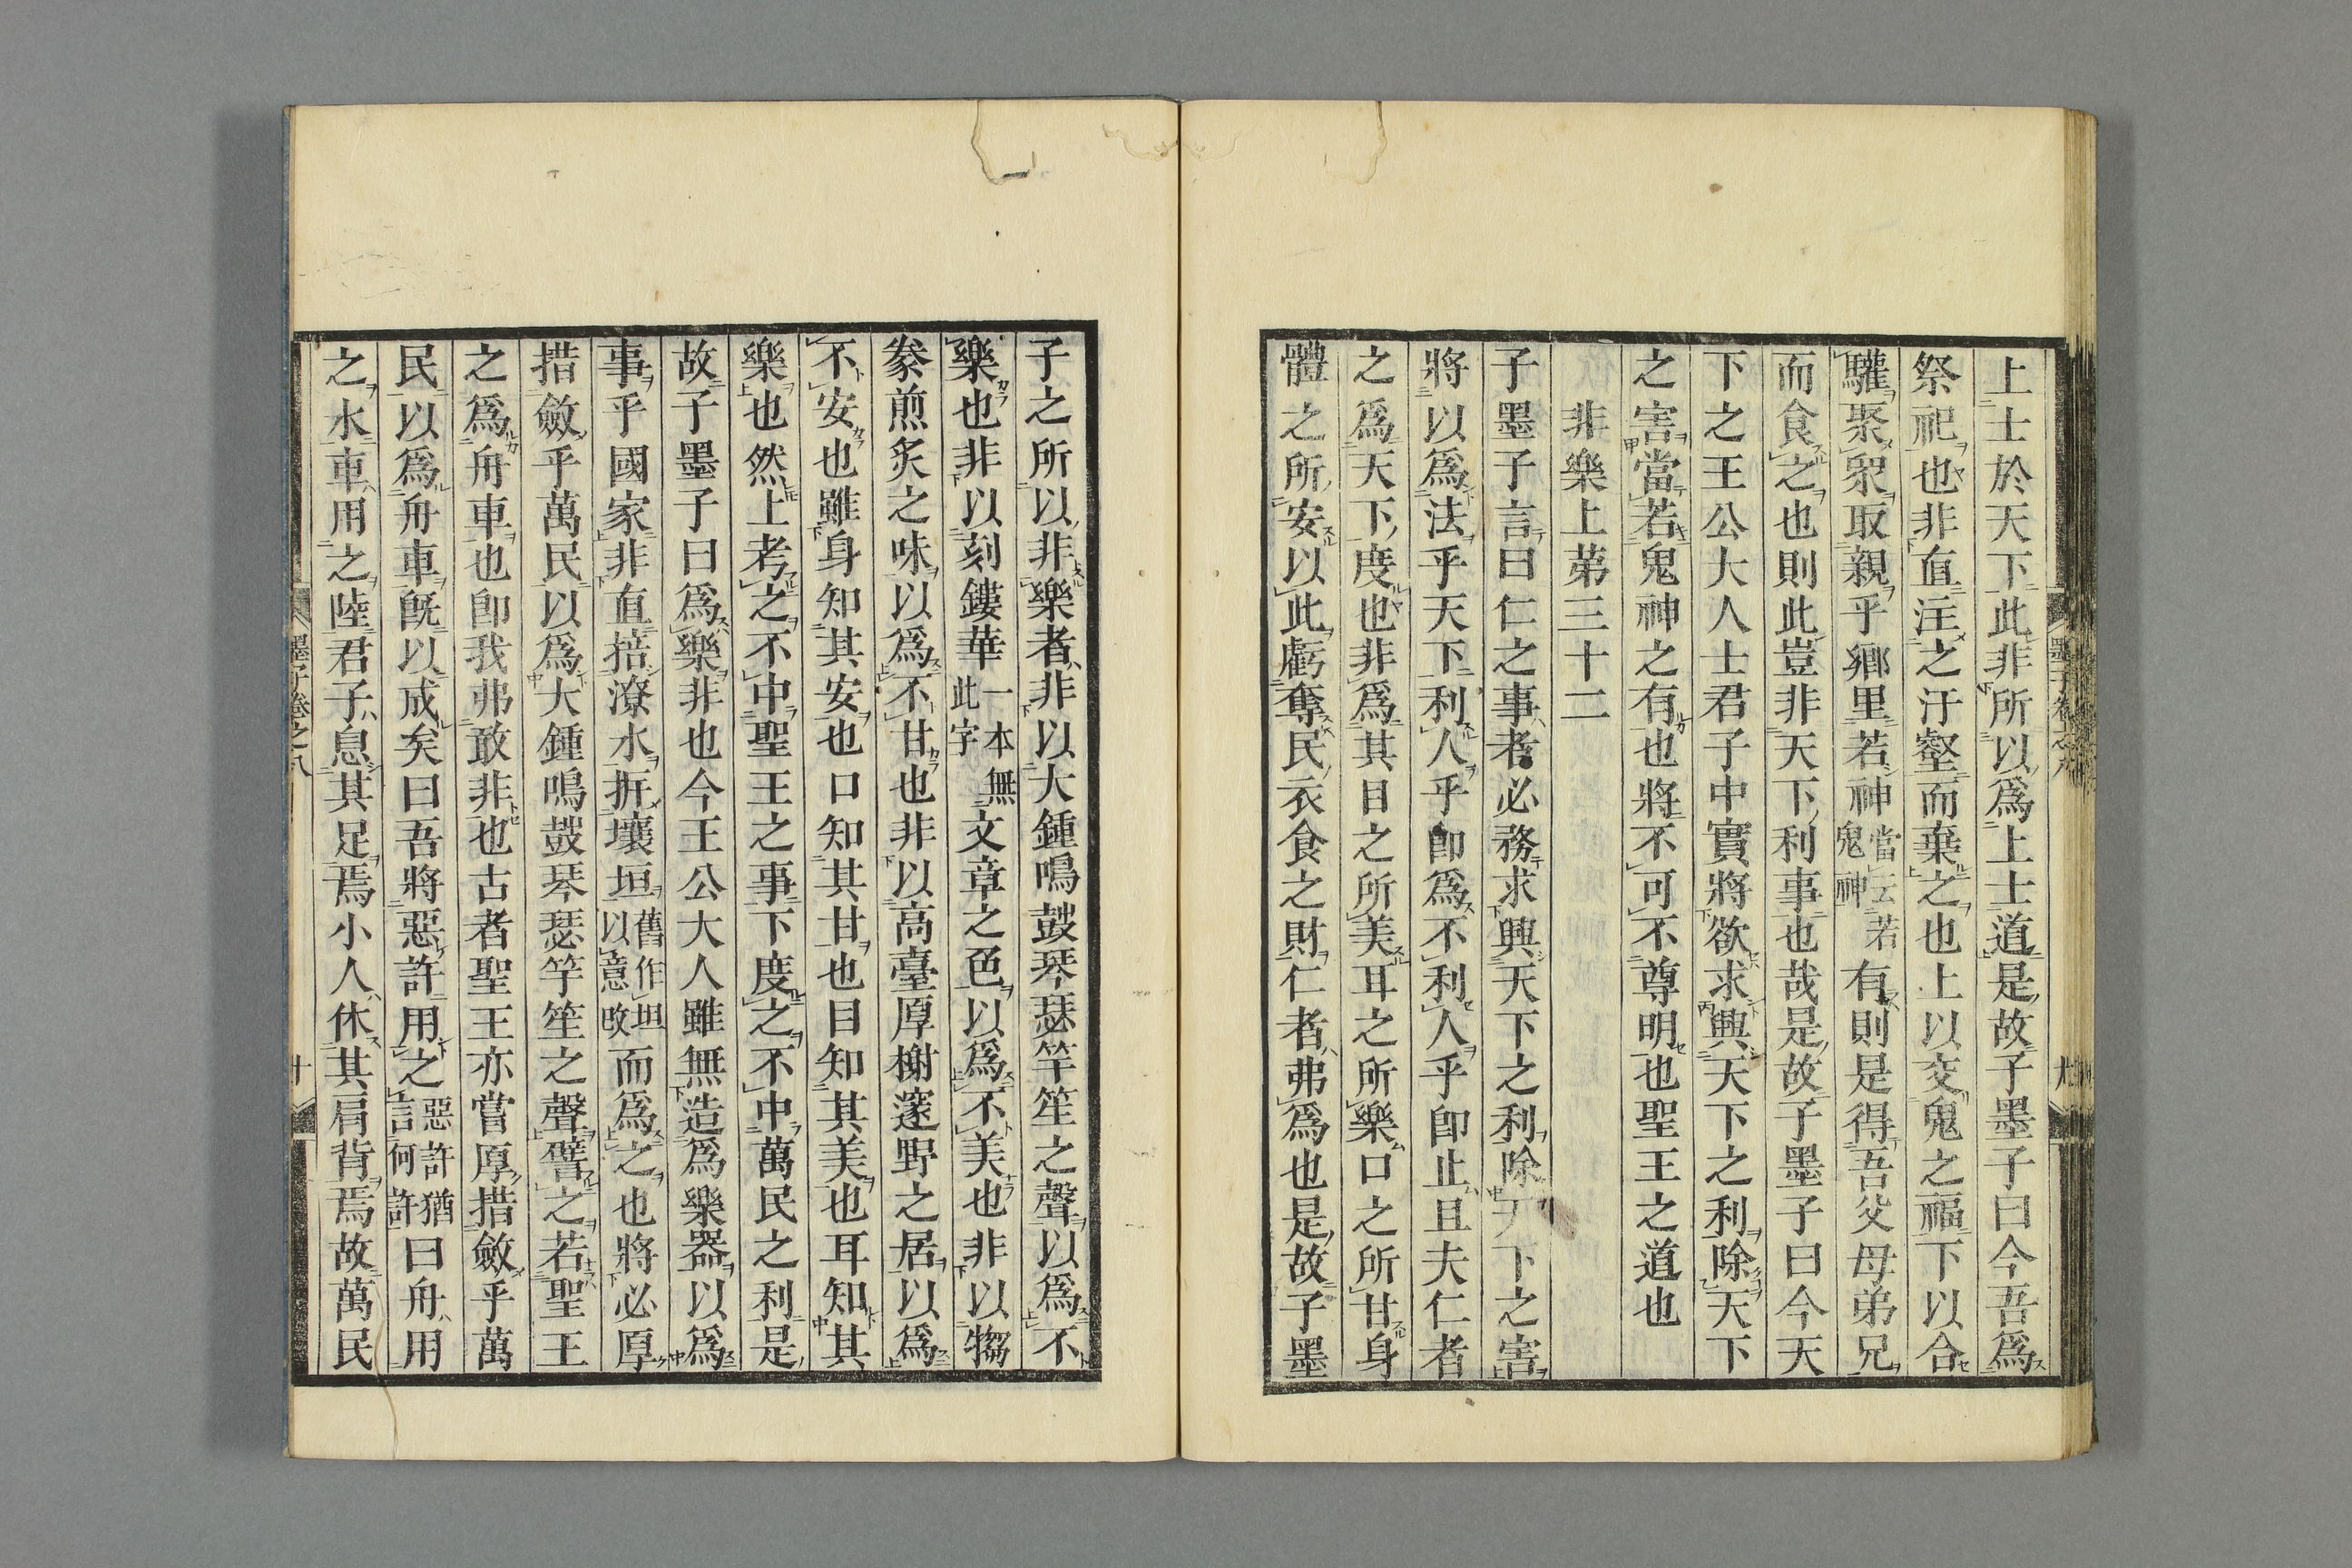 上士於天下此非所以爲上士道是故子墨子曰今吾爲
祭祀也非直注之汙壑而棄之也上以交鬼之福下以合
驩聚衆取親乎鄉里若神當云若鬼神有則是得吾父母弟兄
而食之也則此豈非天下利事也哉是故子墨子曰今天
下之王公大人士君子中實將欲求興天下之利除天下
之害當若鬼神之有也將不可不尊明也聖王之道也
非樂上第三十二
子墨子言曰仁之事者必務求興天下之利除天下之害
將以爲法乎天下利人乎卽爲不利人乎卽止且夫仁者
之爲天下度也非爲其目之所美耳之所樂口之所甘身
體之所安以此虧奪民衣食之財仁者弗爲也是故子墨
子之所以非樂者非以大鍾鳴鼓琴瑟竽笙之聲以爲不
樂也非以刻鏤華一本無此字文章之色以爲不美也非以犓
豢煎炙之味以爲不甘也非以高臺厚榭邃野之居以爲
不安也雖身知其安也口知其甘也目知其美也耳知其
樂也然上考之不中聖王之事下度之不中萬民之利是
故子墨子曰爲樂非也今王公大人雖無造爲樂器以爲
事乎國家非直掊潦水折壤垣舊作坦以意改而爲之也將必厚
措斂乎萬民以爲大鍾鳴鼓琴瑟竽笙之聲譬之若聖王
之爲舟車也卽我弗敢非也古者聖王亦嘗厚措斂乎萬
民以爲舟車旣以成矣曰吾將惡許用之惡許猶言何許曰舟用
之水車用之陸君子息其足焉小人休其肩背焉故萬民
墨子卷之八
十
墨子卷之八